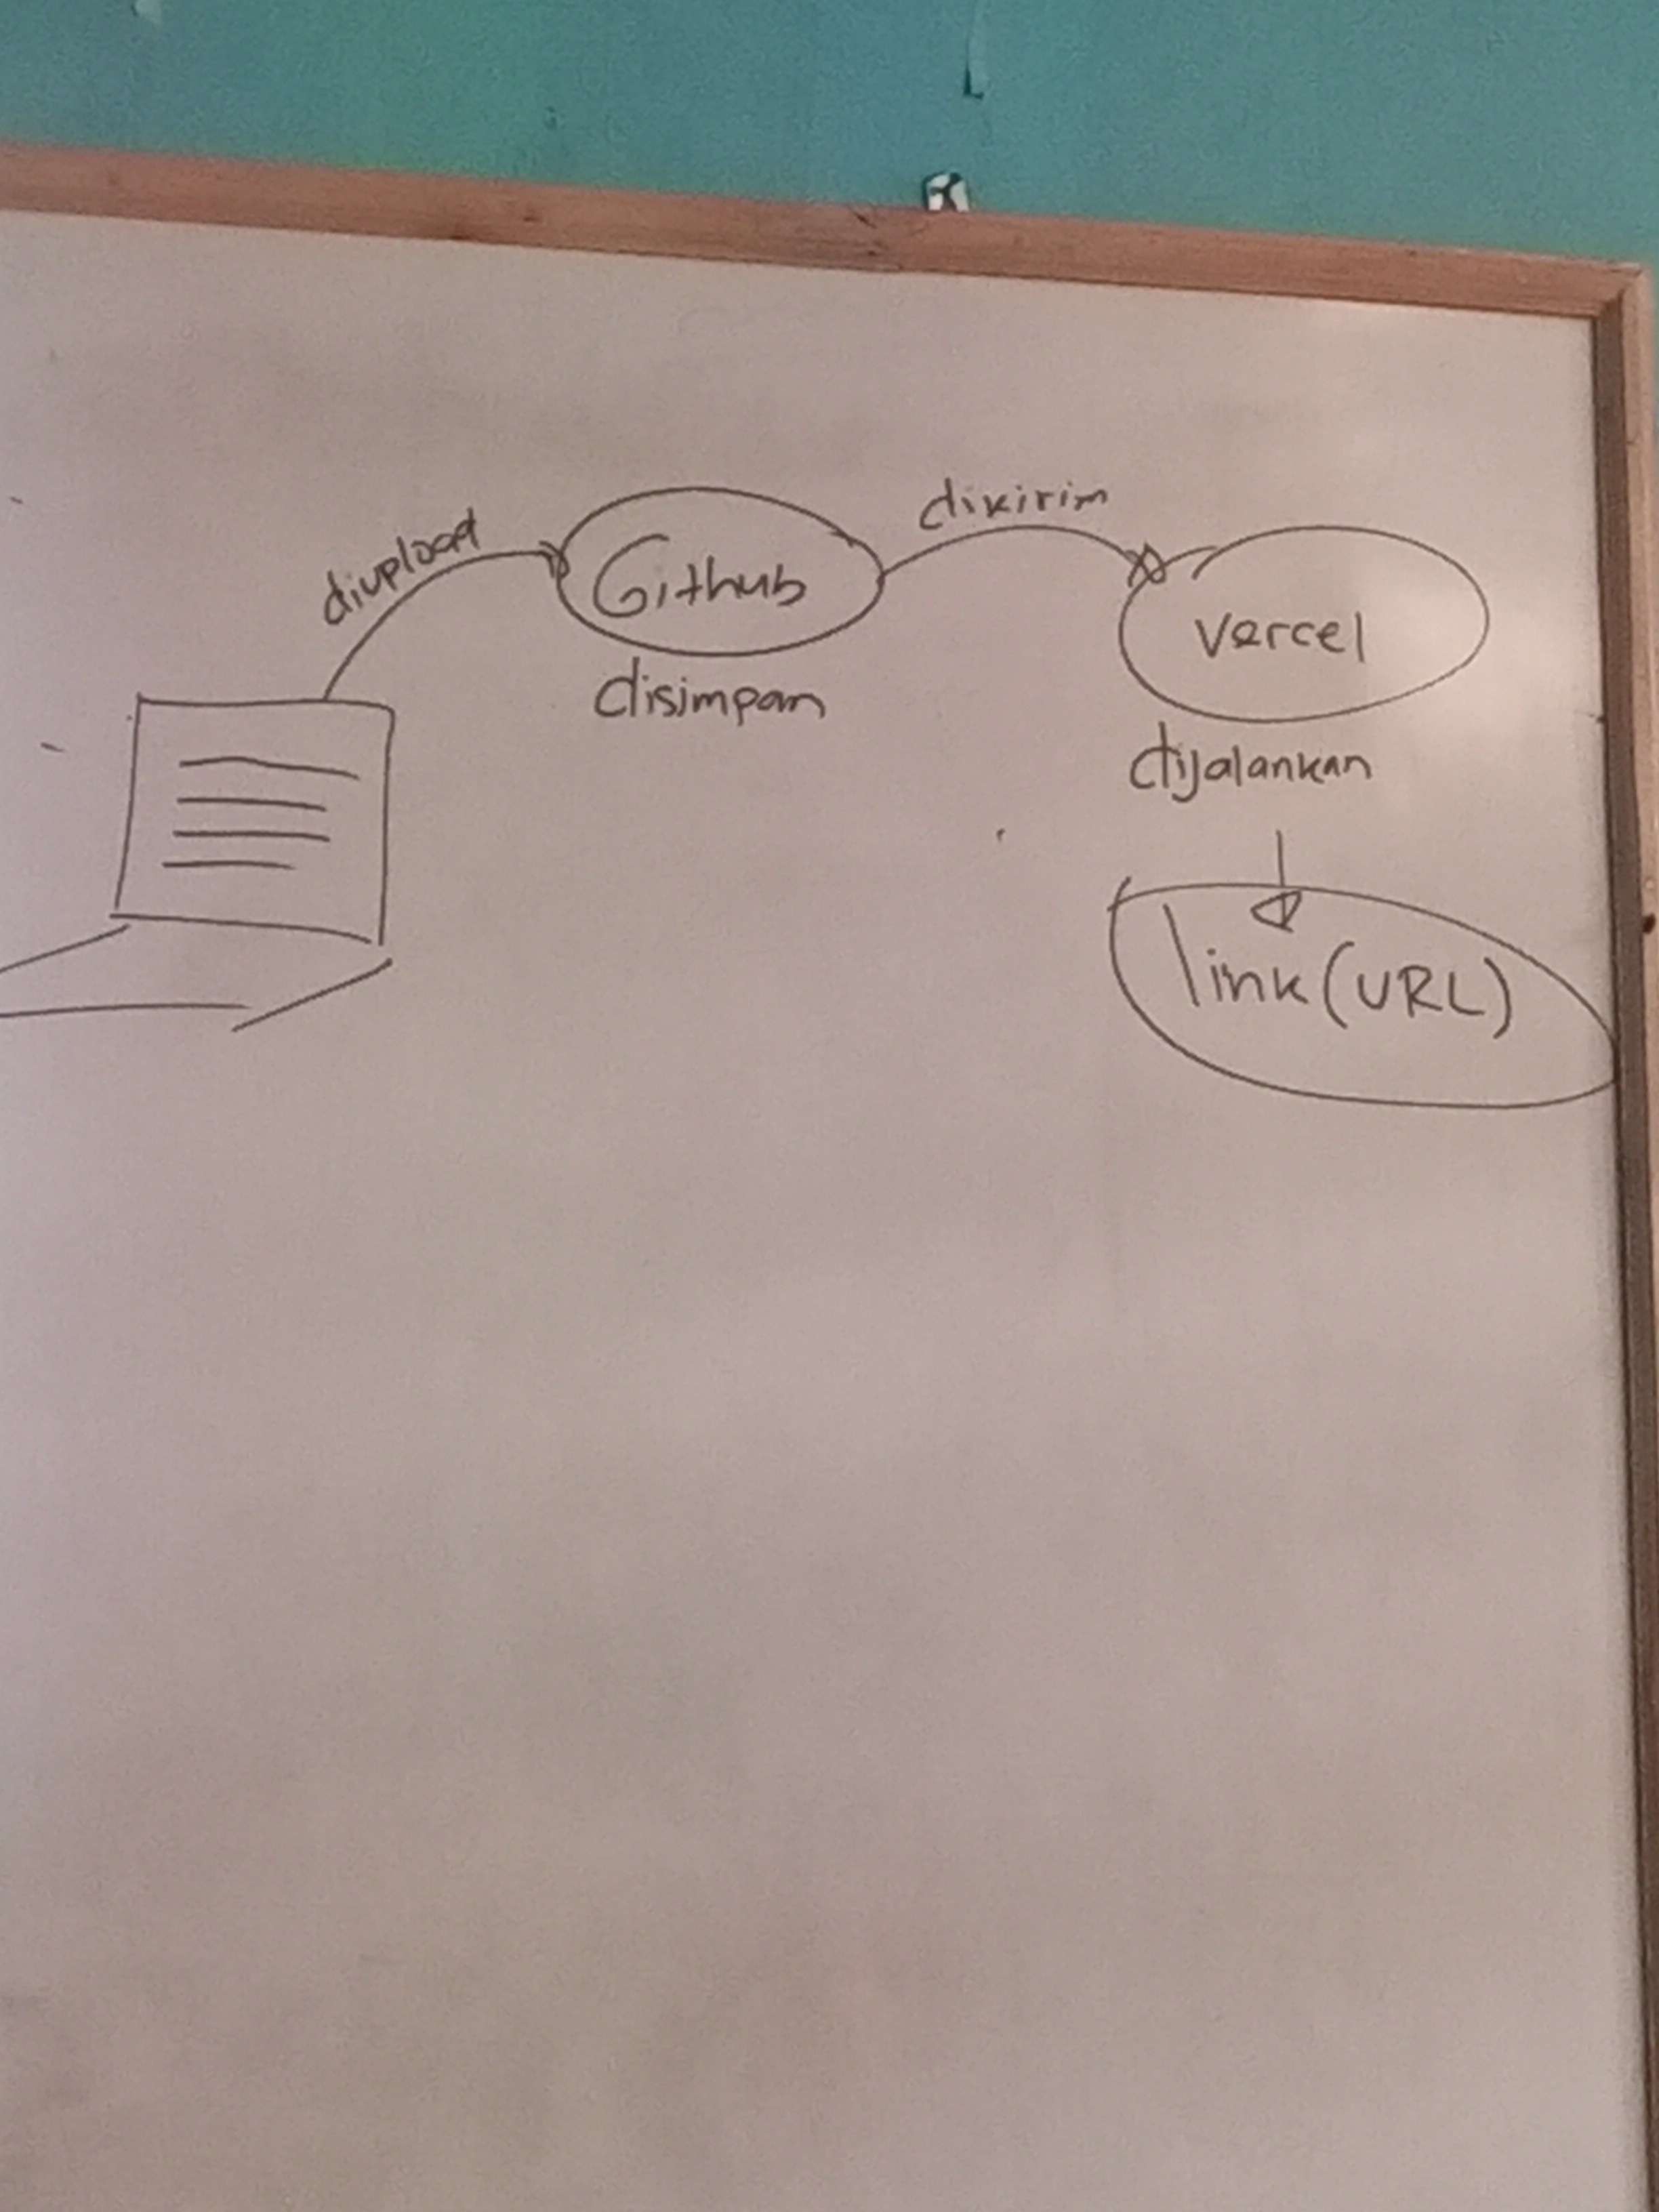 diupload
Github
disimpan
dikirim
Vercel
dijalankan
link (URL)